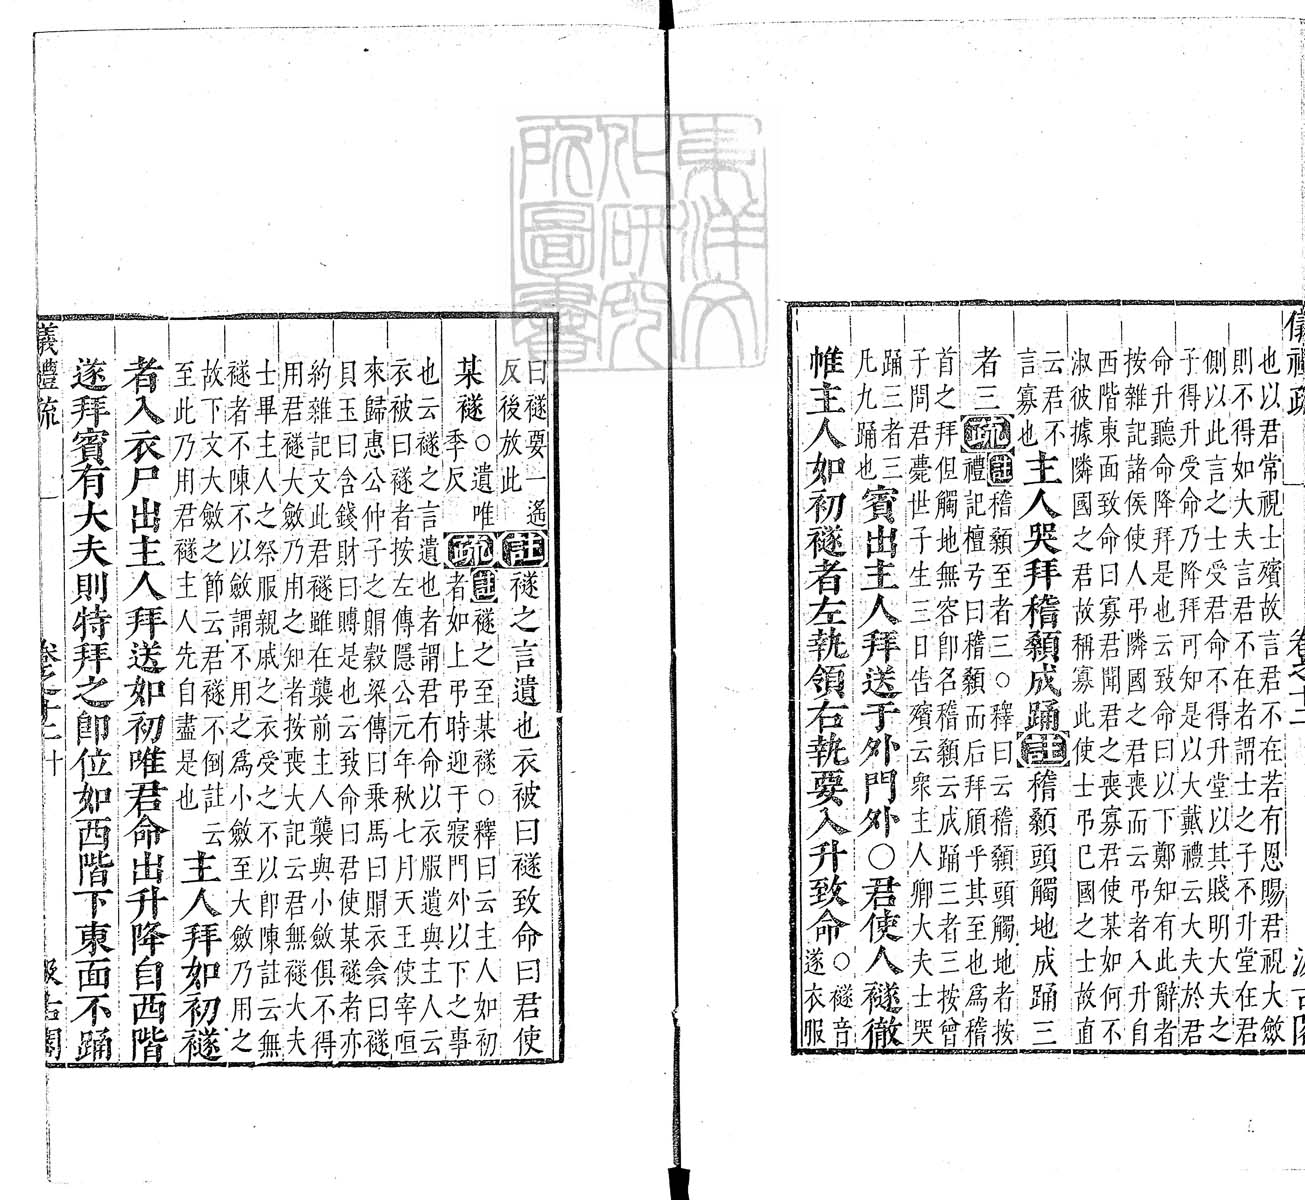 儀禮疏 卷之十二 汲古閣
也以君常視士殯故言君不在若有恩賜君視大斂
則不得如大夫言君不在者謂士之子不升堂在君
側以此言之士受君命不得升堂以其賤明大夫之
子得升受命乃降拜可知是以大戴禮云大夫於君
命升聽命降拜是也云致命曰以下鄭知有此辭者
按雜記諸侯使人弔隣國之君喪而云弔者入升自
西階東面致命曰寡君聞君之喪寡君使某如何不
淑彼據隣國之君故稱寡此使士弔巳國之士故直
云君不
言寡也
主人哭拜稽顙成踊註稽顙頭觸地成踊三
者三疏註稽顙至者三○釋曰云稽顙頭觸地者按
禮記檀弓曰稽顙而后拜頎乎其至也爲稽
首之拜但觸地無容卽名稽顙云成踊三者三按曾
子問君薨世子生三日告殯云衆主人卿大夫士哭
踊三者三
凡九踊也
賓出主人拜送于外門外○君使人襚徹
帷主人如初襚者左執領右執要入升致命○襚音
遂衣服
曰襚要一遙
反後放此
註襚之言遺也衣被曰襚致命曰君使
某襚○遺唯
季反
疏註襚之至某襚○釋曰云主人如初
者如上弔時迎于寢門外以下之事
也云襚之言遺也者謂君有命以衣服遺與主人云
衣被曰襚者按左傳隱公元年秋七月天王使宰咺
來歸惠公仲子之賵穀梁傳曰乘馬曰賵衣衾曰襚
貝玉曰含錢財曰賻是也云致命曰君使某襚者亦
約雜記文此君襚雖在襲前主人襲與小斂俱不得
用君襚大斂乃用之知者按喪大記云君無襚大夫
士畢主人之祭服親戚之衣受之不以卽陳註云無
襚者不陳不以斂謂不用之爲小斂至大斂乃用之
故下文大斂之節云君襚不倒註云
至此乃用君襚主人先自盡是也
主人拜如初襚
者入衣尸出主人拜送如初唯君命出升降自西階
遂拜賓有大夫則特拜之卽位如西階下東面不踊
儀禮疏 卷之十二 十 汲古閣
東洋文化研究所圖書